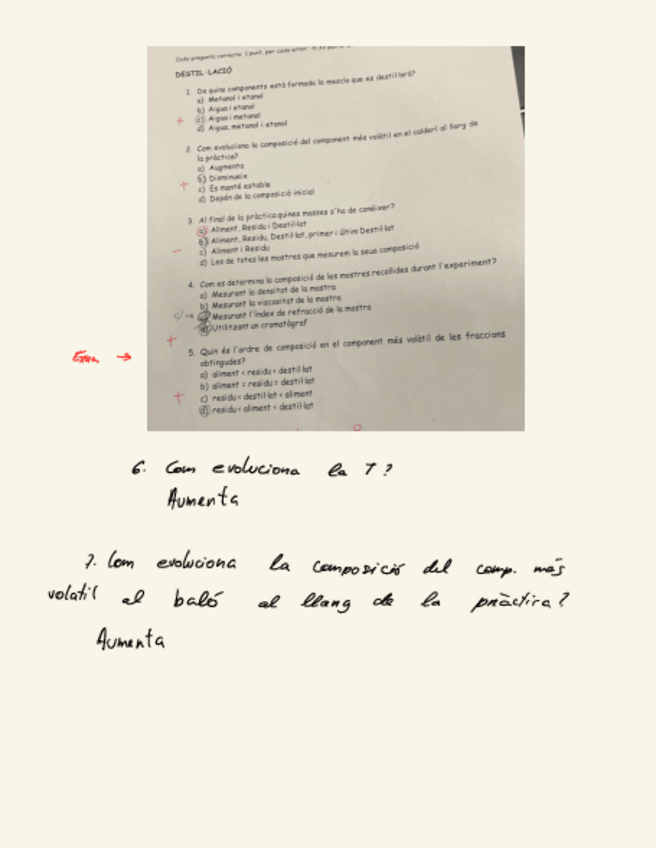 Cada pregunta correcta: 1 punt, per cada error:
DESTIL·LACIÓ
1. De quins components està formada la mescla que es destil·larà?
a) Metanol i etanol
b) Aigua i etanol
+ c) Aigua i metanol
d) Aigua, metanol i etanol
2. Com evoluciona la composició del component més volàtil en el calderí al llarg de
la pràctica?
a) Augmenta
b) Disminueix
+ c) Es manté estable
d) Depèn de la composició inicial
3. Al final de la pràctica quines masses s'ha de conèixer?
a) Aliment, Residu i Destil·lat
b) Aliment, Residu, Destil·lat, primer i últim Destil·lat
- c) Aliment i Residu
d) Les de totes les mostres que mesurem la seua composició
4. Com es determina la composició de les mostres recollides durant l'experiment?
a) Mesurant la densitat de la mostra
b) Mesurant la viscositat de la mostra
c) Mesurant l'índex de refracció de la mostra
d) Utilitzant un cromatògraf
+
5. Quin és l'ordre de composició en el component més volàtil de les fraccions
obtingudes?
a) aliment < residu < destil·lat
b) aliment = residu = destil·lat
+ c) residu < destil·lat < aliment
d) residu < aliment < destil·lat
6. Com evoluciona la T?
Aumenta
7. Com evoluciona la composició del comp. más
volatil al baló al llang de la pràctica?
Aumenta